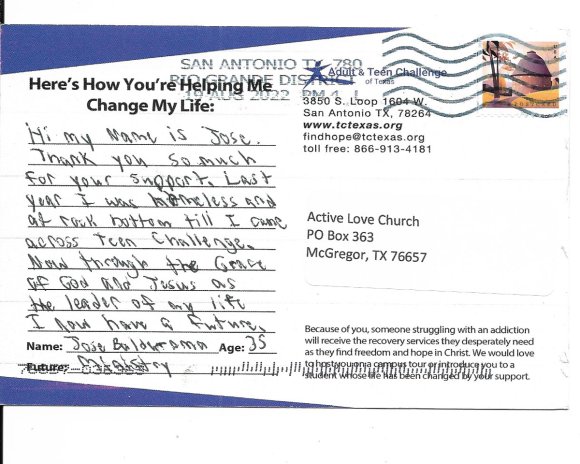 SAN ANTONIO TX 780
RIO GRANDE DISTRICT
19 AUG 2022 PM 4 L
Here's How You're Helping Me
Change My Life:
Hi my Name is Jose.
Thank you so much
for your support. Last
year I was homeless and
at rock bottom till I came
across Teen Challenge.
Now through the Grace
of God and Jesus as
the leader of my life
I now have a future.
Name: Jose Balderrama Age: 35
Future: Ministry
Adult & Teen Challenge
of Texas
3850 S. Loop 1604 W.
San Antonio TX, 78264
www.tctexas.org
findhope@tctexas.org
toll free: 866-913-4181
Active Love Church
PO Box 363
McGregor, TX 76657
Because of you, someone struggling with an addiction
will receive the recovery services they desperately need
as they find freedom and hope in Christ. We would love
to host you on a campus tour or introduce you to a
student whose life has been changed by your support.